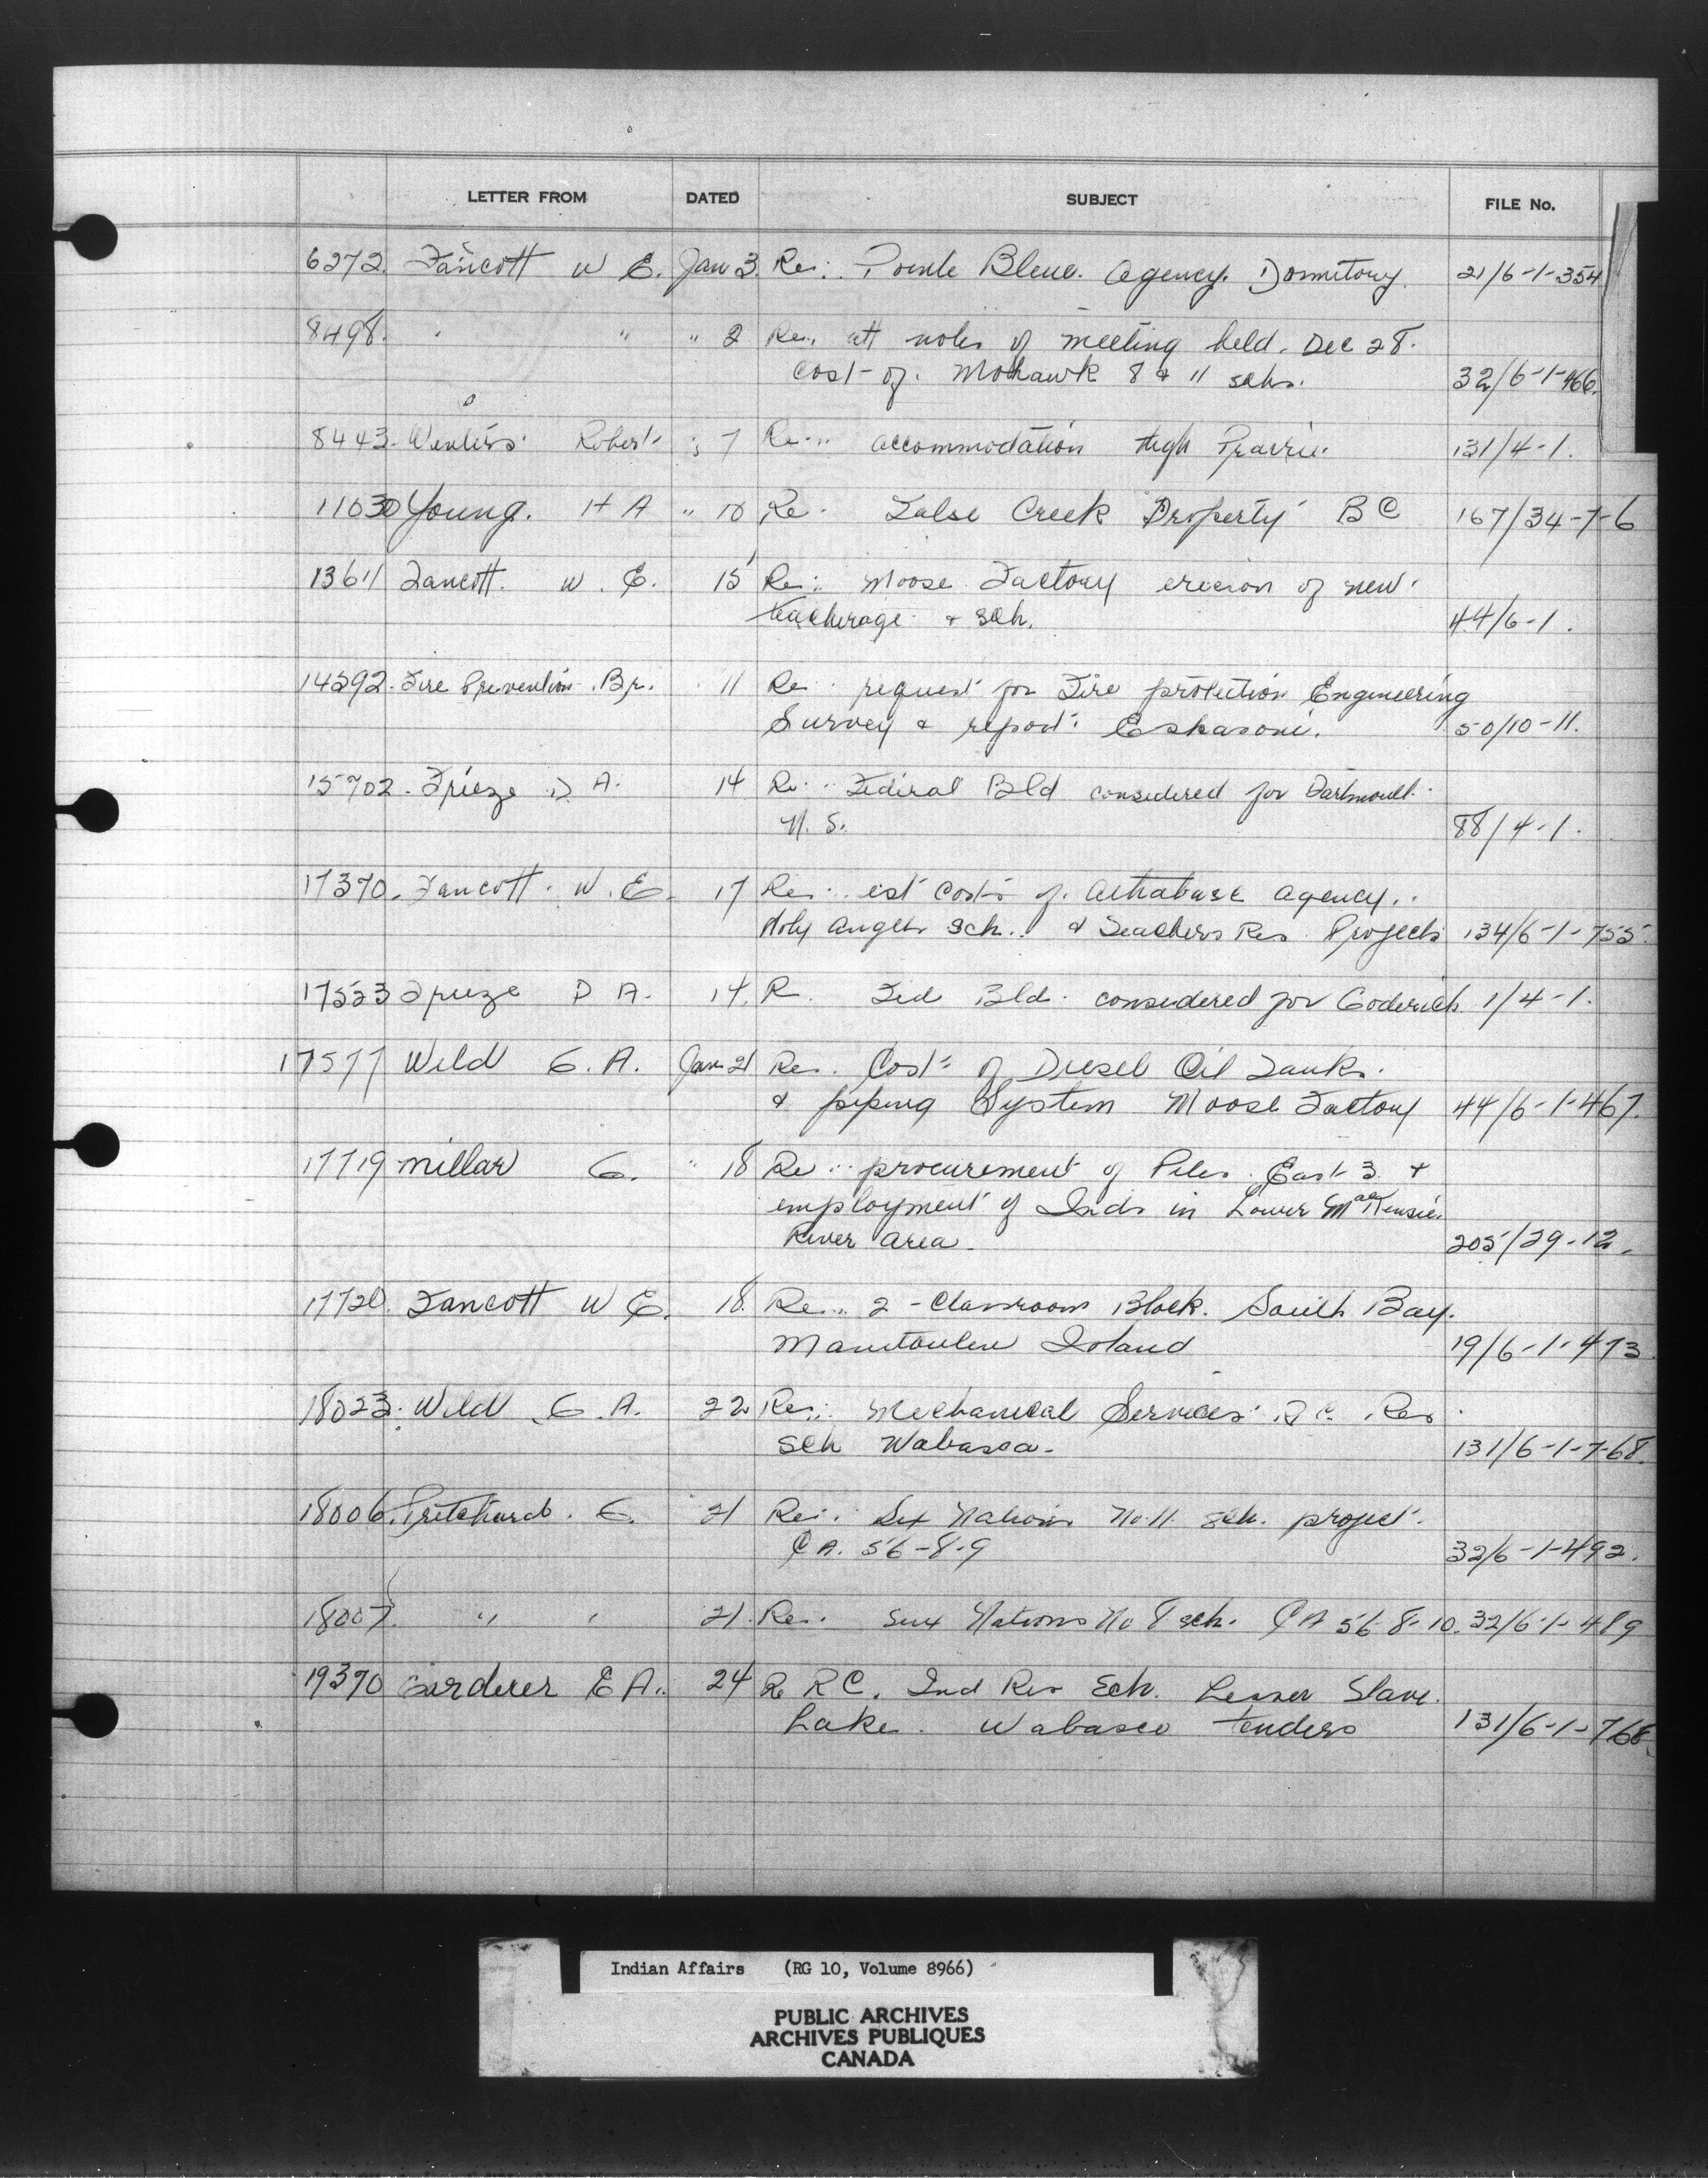 LETTER FROM DATED SUBJECT FILE No.
6272. Fancott W E. Jan 3. Re: Pointe Bleue. Agency. Dormitory. 21/6-1-354
8498. " " " 2 Re: att notes of meeting held. Dec 28.
Cost of. Mohawk 8 & 11 schs. 32/6-1-466.
8443. Winters Robert " 7 Re: accommodation High Prairie 131/4-1.
11030 Young. H A " 10 Re. False Creek Property B C 167/34-7-6
13611 Fancott. W. E. 15 Re: Moose Factory erecion of new
teacherage & sch. 44/6-1.
14292. Fire Prevention Br. 11 Re request for Fire protection Engineering
Survey & report: Eskasoni. 50/10-11.
15702. Frieze D A. 14 Re: Federal Bld considered for Dartmouth
N. S. 88/4-1.
17370. Fancott W. E. 17 Re: est costs of. Athabasc agency.
Holy Angels Sch. & Teachers Res. Projects 134/6-1-755.
17523 Frieze D A. 14. R. Fed Bld. considered for Goderich. 1/4-1.
17577 Wild G. A. Jan 21 Re. Cost of Diesel Oil Tanks.
& piping System Moose Factory 44/6-1-467.
17719 Millar G. " 18 Re procurement of Piles. East 3 &
employment of Inds in Lower MacKensie
River area. 205/29-12.
17720. Fancott W E. 18. Re: 2-Classroom Block. South Bay.
Manitoulin Island 19/6-1-473
18023. Wild G. A. 22 Re: Mechanical Services R C. Res
Sch Wabasca. 131/6-1-768.
18006. Pritchard. G. 21 Re: Six Nations No. 11 sch. project.
C A. 56-8-9 32/6-1-492.
18007. " " 21. Re. Six Nations No 8 sch. C A 56-8-10. 32/6-1-489
19370 Gardener E A. 24 Re R C. Ind Res Sch. Lesser Slave
Lake. Wabasco tenders 131/6-1-768.
Indian Affairs (RG 10, Volume 8966)
PUBLIC ARCHIVES
ARCHIVES PUBLIQUES
CANADA